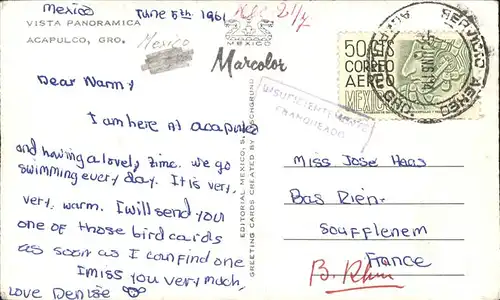 Mexico
June 5th 1961
Rec 21/7
VISTA PANORAMICA
ACAPULCO, GRO.
Mexico
MEXICO
Marcolor
50 CTS
CORREO
AEREO
MEXICO
SERVICIO AEREO
INSUFICIENTEMENTE
FRANQUEADO
Dear Nanny
I am here at acapulco
and having a lovely time. we go
swimming every day. It is very,
very, warm. I will send you
one of those bird cards
as soon as I can find one
I miss you very much,
LOVE Denise
EDITORIAL MEXICO, S.
GREETING CARDS CREATED BY FISCHGRUND
Miss Jose Haas
Bas Rien.
Soufflenem
France
B. Rhin